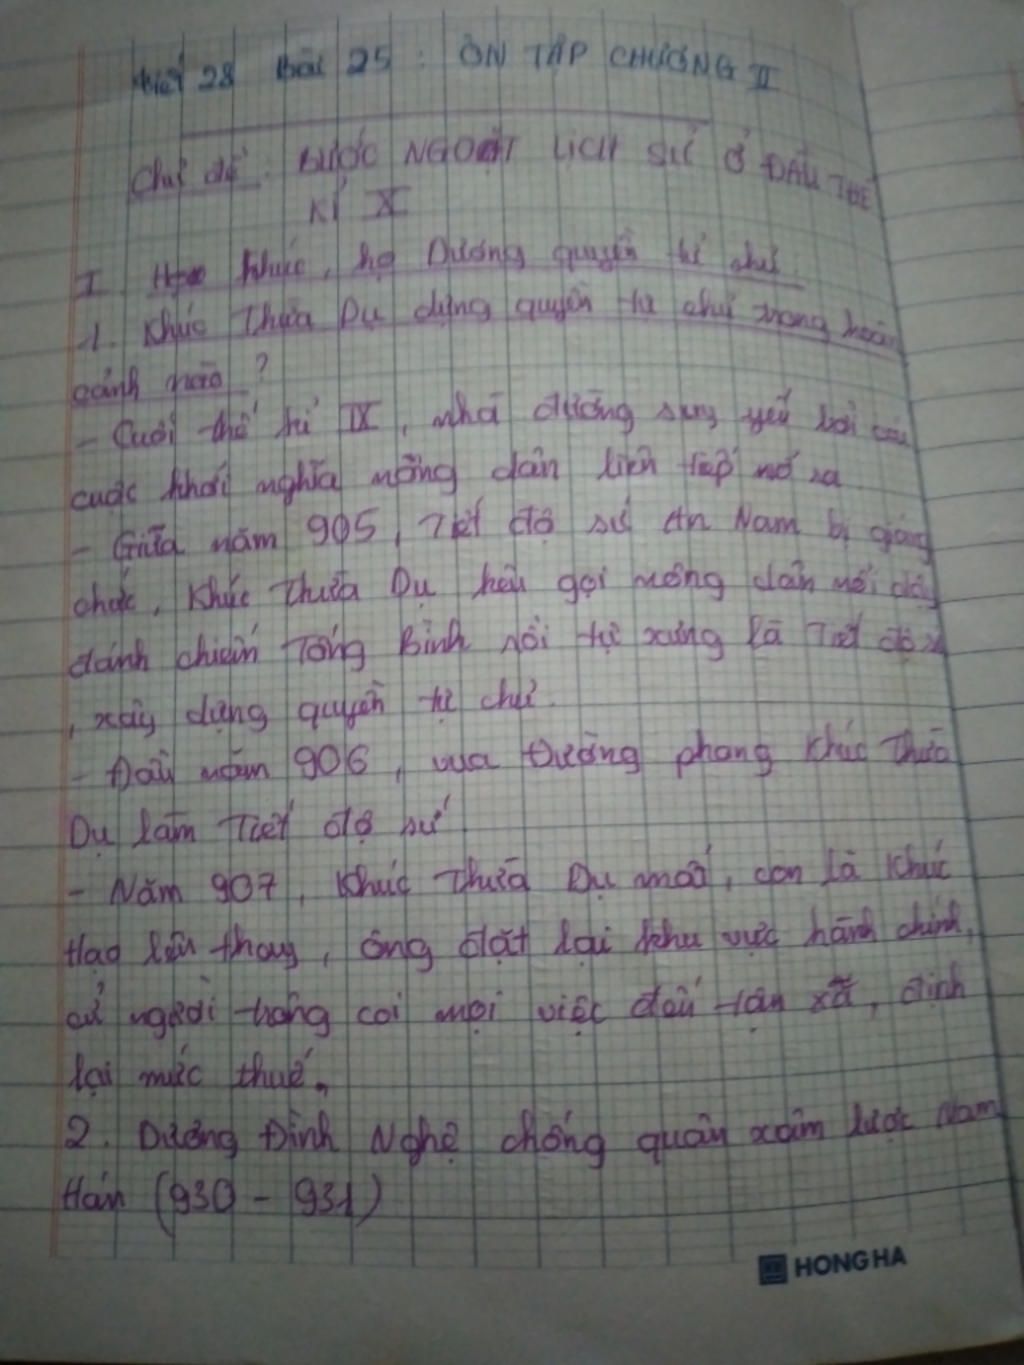 Tiết 28 Bài 25 : ÔN TẬP CHƯƠNG II
Chủ đề : BƯỚC NGOẶT LỊCH SỬ Ở ĐẦU THẾ
KỈ X
I Họ Khúc, họ Dương quyền tự chủ
1. Khúc Thừa Dụ dựng quyền tự chủ trong hoàn
cảnh nào ?
- Cuối thế kỉ IX, nhà đường suy yếu bởi các
cuộc khởi nghĩa nông dân liên tiếp nổ ra
- Giữa năm 905, Tiết độ sứ An Nam bị giáng
chức, Khúc Thừa Dụ kêu gọi nông dân nổi dậy
đánh chiếm Tống Bình rồi tự xưng là Tiết độ sứ
, xây dựng quyền tự chủ.
- Đầu năm 906, vua Đường phong Khúc Thừa
Dụ làm Tiết độ sứ
- Năm 907, Khúc Thừa Dụ mất, con là Khúc
Hạo lên thay, ông đặt lại khu vực hành chính,
cử người trông coi mọi việc đến tận xã, định
lại mức thuế.
2. Dương Đình Nghệ chống quân xâm lược Nam
Hán (930 - 931)
HONG HA